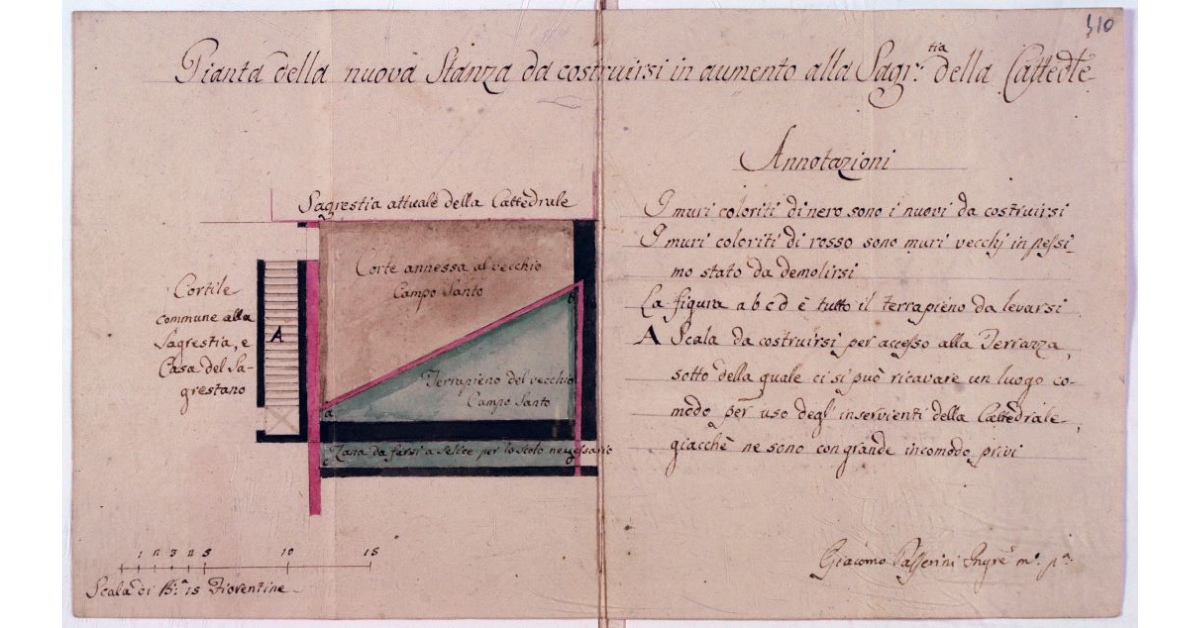 310
Pianta della nuova Stanza da costruirsi in aumento alla Sagr.tia della Cattedle
Annotazioni
Sagrestia attuale della Cattedrale
I muri coloriti di nero sono i nuovi da costruirsi
I muri coloriti di rosso sono muri vecchj in pessi-
mo stato da demolirsi
La figura a b c d è tutto il terrapieno da levarsi
A Scala da costruirsi per accesso alla Terrazza,
sotto della quale ci si può ricavare un luogo co-
modo per uso degl'inservienti della Cattedrale,
giacchè ne sono con grande incomodo privi
Corte annessa al vecchio
Campo Santo
Cortile
commune alla
Sagrestia, e
Casa del Sa-
grestano
A
b
Terrapieno del vecchio
Campo Santo
a
Zana da farsi a selice per lo scolo necessario
c
1 2 3 4 5 10 15
Scala di B.a 15 Fiorentine
Giacomo Passerini Ingre mo. pa.